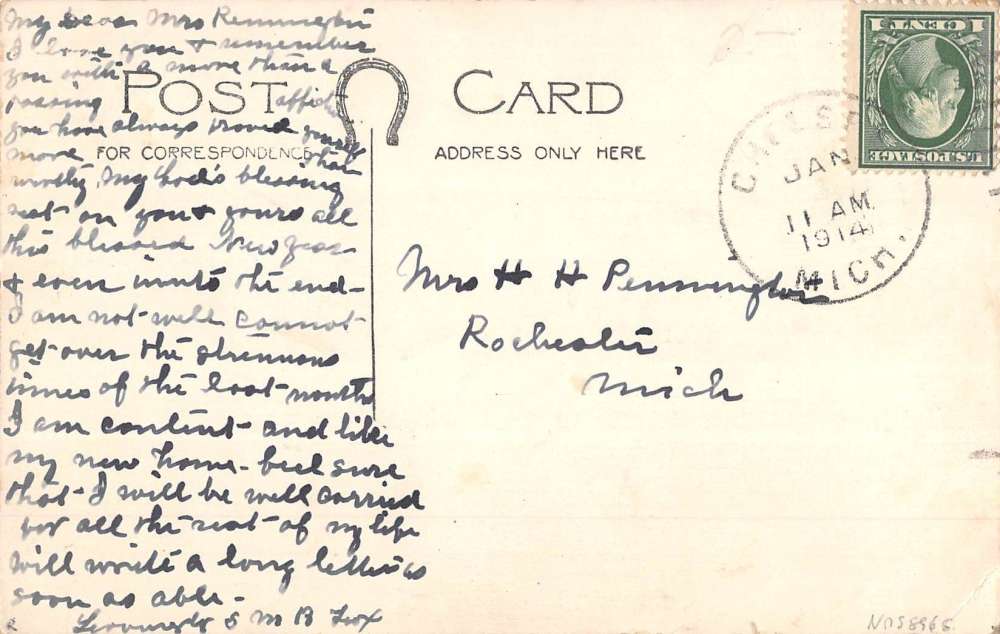 My dear Mrs Pennington
I love you & remember
you with a more than a
passing affict
you have always proved yourself
more what
worthy. My God's blessing
rest on you & yours all
this blessed New Year
& even unto the end -
I am not well cannot
get over the strenuous
times of the last month
I am content and like
my new home - feel sure
that I will be well carried
for all the rest of my life
will write a long letter as
soon as able -
Lovingly S M B Fox
POST CARD
FOR CORRESPONDENCE
ADDRESS ONLY HERE
Mrs H H Pennington
Rochester
Mich
CHELSEA
JAN
11 AM
1914
MICH.
U.S. POSTAGE
1 CENT 1
NDS8965